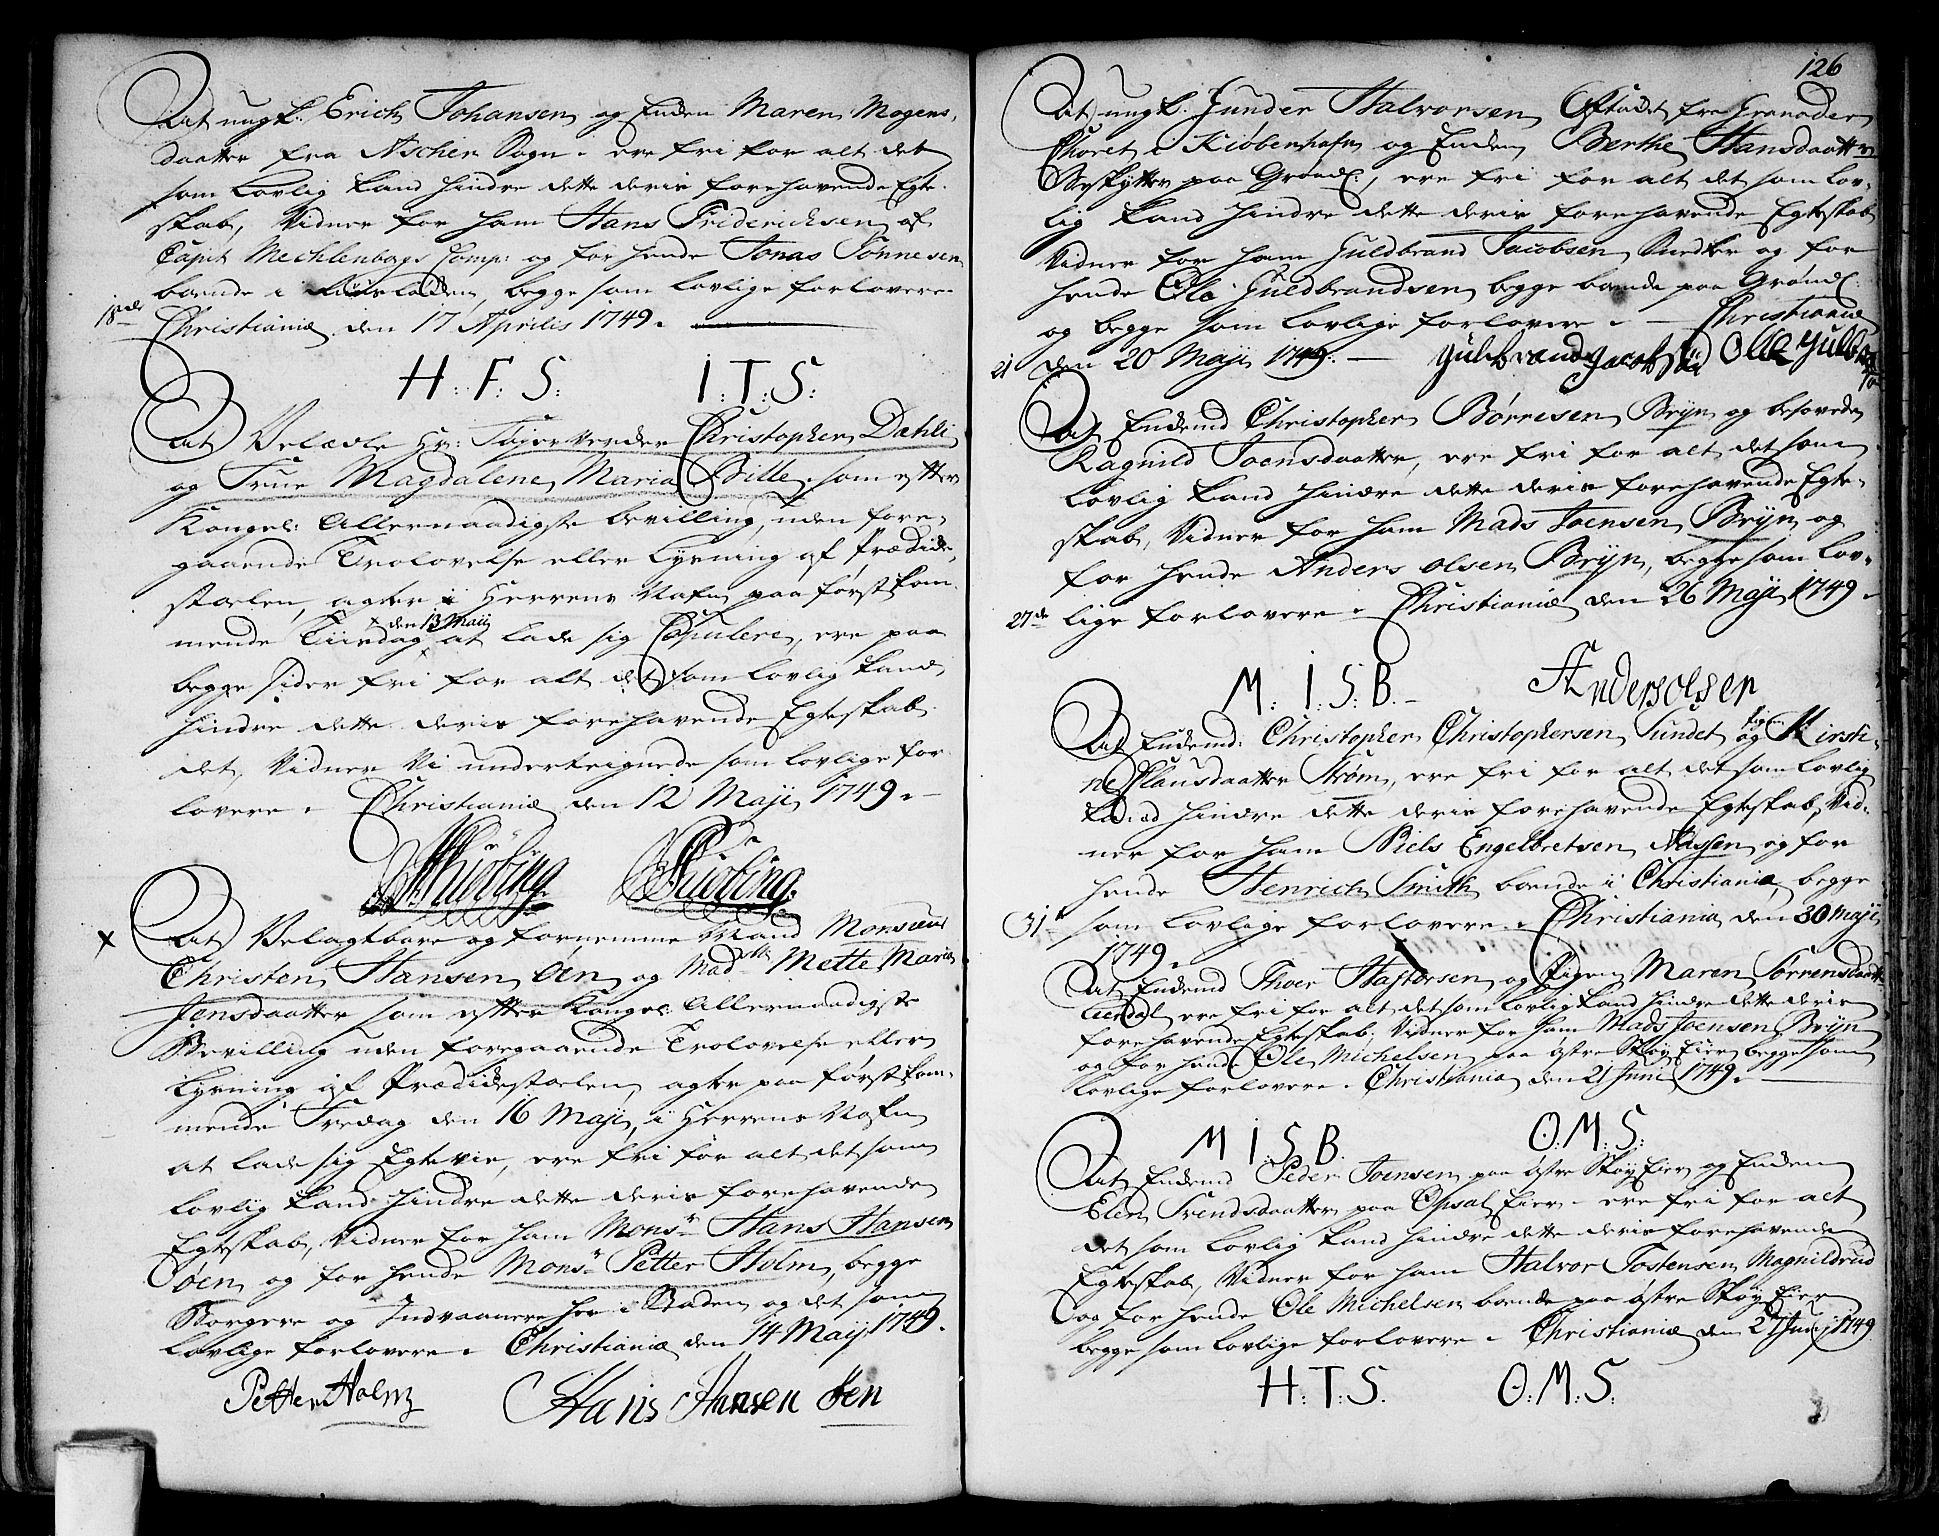 At ungk: Erich Johansen og Enken Maren Mogens
daatter fra Ascher Sogn ere fri for alt det
som lovlig kand hindre dette deris forehavende Egte-
skab, Vidner for ham Hans Friderichsen af
Capit Mechlenborgs Comp: og for hende Jonas Tønnesen
boende i begge som lovlige forlovere
18de Christiania den 17 Aprilis 1749.
H: F: S: I: T: S:
At Velædle Hr: Christopher Dahll
og Frue Magdalene Maria Bille som efter
Kongel: Allernaadigste bevilling, uden fore-
gaaende Trolovelse eller Lysning af Prædike-
stoelen, agter i Herrens Nafn paa først kom-
x den 13 Maij
mende Tiirsdag at lade sig Copulere, ere paa
begge sider fri for alt det som lovlig kand
hindre dette deris forehavende Egteskab
det Vidner Vi underteignede som lovlige for
lovere. Christiania den 12 Maji 1749.
x At Velagtbare og fornemme Mand Monsieur
Christen Hansen Øen og Madlle Mette Maria
Jensdaatter som efter Kongel: Allernaadigste
Bevilling uden foregaaende Trolovelse eller
Lysning af Prædikestoelen, agter paa først kom-
mende Fredag den 16 Maji, i Herrens Nafn
at lade sig Egtevie, ere fri for alt det som
lovlig kand hindre dette deris forehavende
Egteskab, Vidner for ham Monsr Hans Hansen
Øen og for hende Monsr Petter Holm, begge
Borgere og Indvaanere her i Staden og det som
lovlige forlovere. Christiania den 14 Maij 1749.
Petter Holm Hans Hansen Øen
126
At ungk: Gunder Halvorsen fra Granadeer
Choret i Kiøbenhafn og Enken Berthe Hansdaatter
paa Grønl: ere fri for alt det som lov-
lig kand hindre dette deris forehavende Egteskab
Vidner for ham Guldbrand Jacobsen Snedker og for
hende Ole Guldbrandsen begge boende paa Grønl:
og begge som lovlige forlovere. Christiania
21 den 20 Maji 1749.
At Enkemd Christopher Børresen Bryn og
Ragnild Joensdaatter, ere fri for alt det som
lovlig kand hindre dette deris forehavende Egte-
skab, Vidner for ham Mads Joensen Bryn og
for hende Anders Olsen Bryn, begge som lov-
27de lige forlovere. Christiania den 26 Maji 1749.
M: I: S: B. Anders olsen
At Enkemd: Christopher Christophersen Sundet og pigen Kirsti-
ne Clausdaatter Strøm, ere fri for alt det som lovlig
kand hindre dette deris forehavende Egteskab, Vid-
ner for ham Niels Engelbretsen Nassen og for
hende Henrich Smith boende i Christiania, begge
31 som lovlige forlovere. Christiania den 30 Maji
1749.
At Enkemd Thoer og Pigen Maren Sørrensdaatter
ere fri for alt det som lovlig kand hindre dette deris
forehavende Egteskab, Vidner for ham Mads Joensen Bryn
og for hende Ole Michelsen paa østre Skøyen Eier begge som
lovlige forlovere. Christiania den 21 Junii 1749.
M I S B. O: M: S:
At Enkemd Peder Joensen paa østre Skøyen Eier og Enken
Eleri Trendsdaatter paa Opsal Eier ere fri for alt
det som lovlig kand hindre dette deris forehavende
Egteskab, Vidner for ham Halvor Tostensen Magnildrud
og for hende Ole Michelsen boende paa østre Skøyen Eier
begge som lovlige forlovere. Christiania den 27 Junij 1749
H: T: S: O: M: S: